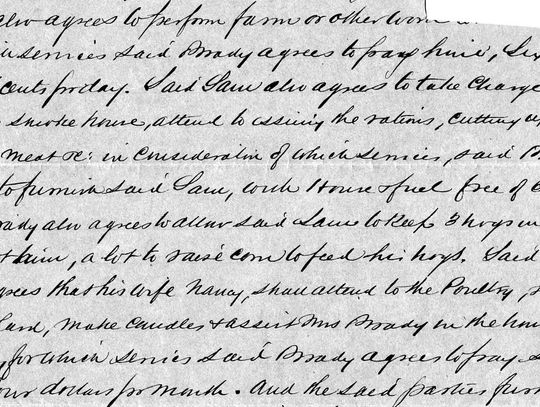 also agrees to perform farm or other work
services said Brady agrees to pay him, Six
cents pr day. Said Sam also agrees to take charge
smoke house, attend to issuing the rations, cutting up
meat &c: in consideration of which services, said B
to furnish said Sam, with House & fuel free of C
Brady also agrees to allow said Sam to keep 3 hogs in
him, a lot to raise corn to feed his hogs. Said
agrees that his wife Nancy, shall attend to the Poultry,
Lard, make candles & assist Mrs Brady in the hou
for which services said Brady agrees to pay
four dollars pr month. And the said parties fur